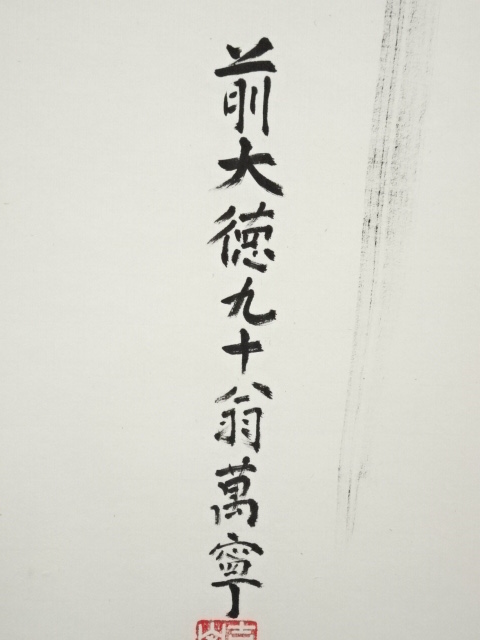 前大徳九十翁萬寧